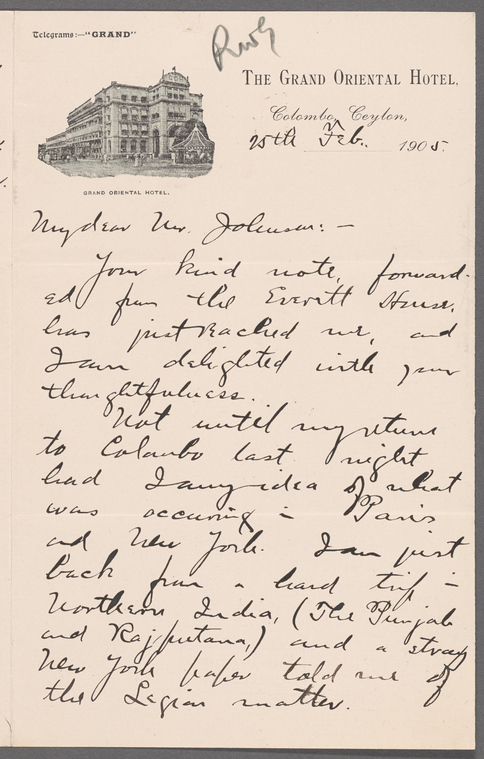 Telegrams:—"GRAND"
RWG
THE GRAND ORIENTAL HOTEL,
Colombo, Ceylon,
25th Feb. 1905.
GRAND ORIENTAL HOTEL.
My dear Mr. Johnson: —
Your kind note, forward-
ed from the Everett House,
has just reached me, and
I am delighted with your
thoughtfulness.
Not until my return
to Colombo last night
had I any idea of what
was occuring in Paris
and New York. I am just
back from a hard trip in
Northern India, (The Punjab
and Rajputana,) and a stray
New York paper told me of
the Legion matter.